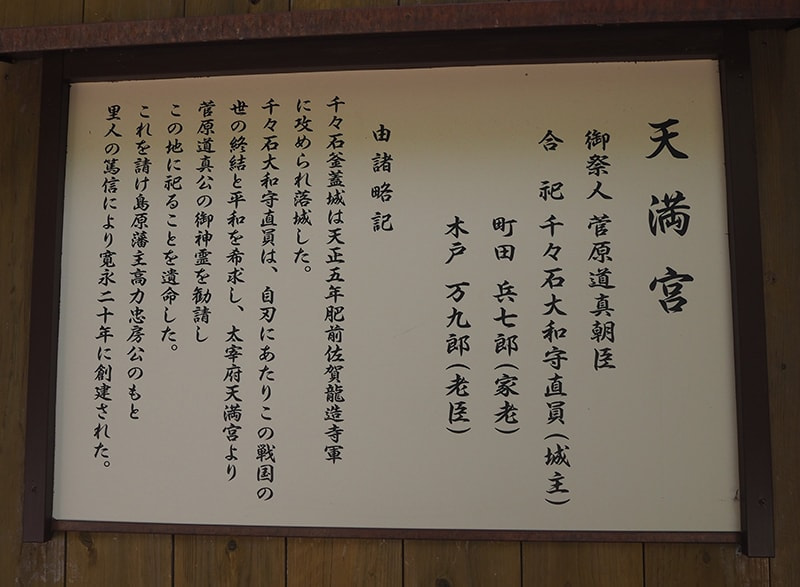 天満宮
御祭人 菅原道真朝臣
合祀 千々石大和守直員(城主)
町田 兵七郎(家老)
木戸 万九郎(老臣)
由諸略記
千々石釜蓋城は天正五年肥前佐賀龍造寺軍
に攻められ落城した。
千々石大和守直員は、自刃にあたりこの戦国の
世の終結と平和を希求し、太宰府天満宮より
菅原道真公の御神霊を勧請し
この地に祀ることを遺命した。
これを請け島原藩主高力忠房公のもと
里人の篤信により寛永二十年に創建された。